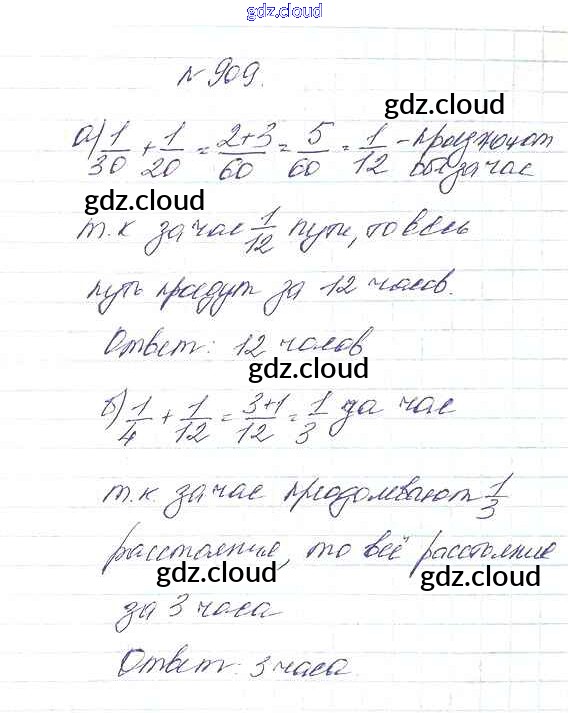 gdz.cloud
gdz.cloud
№ 909.
gdz.cloud
а) 1/30 + 1/20 = 2+3/60 = 5/60 = 1/12 –
оба за час
gdz.cloud
т.к за час 1/12 пути, то весь
путь пройдут за 12 часов.
Ответ: 12 часов
gdz.cloud
б) 1/4 + 1/12 = 3+1/12 = 1/3 за час
т.к. за час преодолевают 1/3
расстояния, то всё расстояние
gdz.cloud gdz.cloud
за 3 часа
Ответ: 3 часа.
gdz.cloud